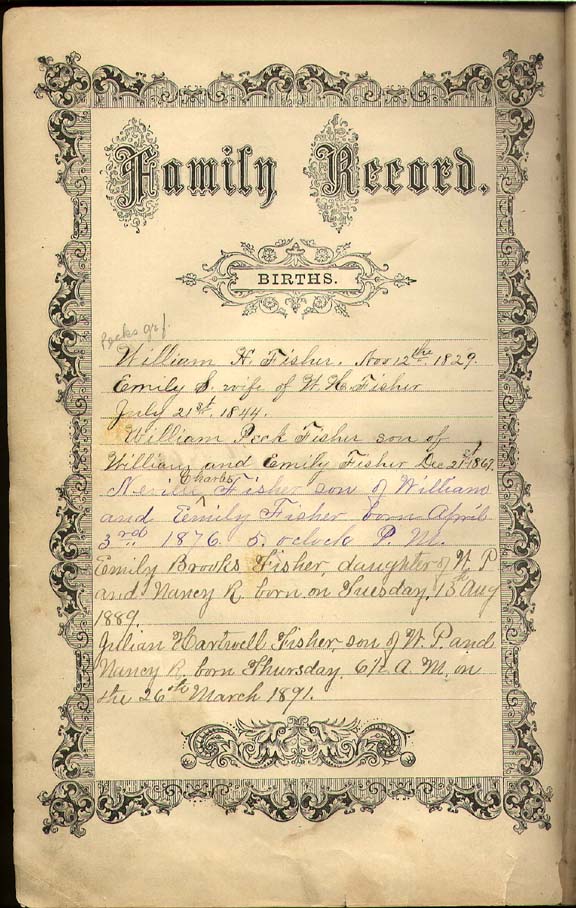 Family Record.
BIRTHS.
William H. Fisher. Nov 12the 1829.
Emily S. wife of W. H. Fisher
July 21st. 1844.
William Peck Fisher son of
William and Emily Fisher Dec 21st 1867.
Charles
Neville Fisher son of William
and Emily Fisher born April
3rd 1876. 5 oclock P. M.
Emily Brooks Fisher, daughter of W. P
and Nancy R. born on Tuesday, 13th Aug
1889.
Julian Hartwell Fisher, son of W. P. and
Nancy R, born Thursday. 6½ A. M. on
the 26th March 1891.